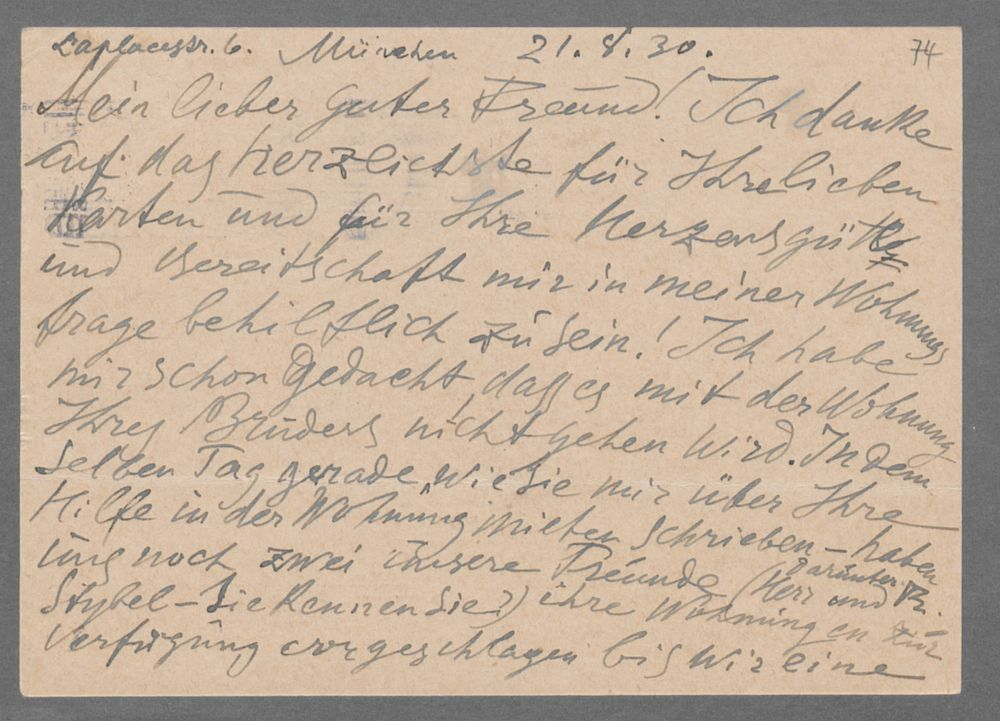 Laplacestr. 6. München 21.8.30. 74
Mein lieber guter Freund! Ich danke
auf das Herzlichste für Ihre lieben
Karten und für Ihre Herzensgüte
und Bereitschaft mir in meiner Wohnungs
frage behilflich zu sein! Ich habe
mir schon gedacht, dass es mit der Wohnung
Ihres Bruders nicht gehen wird. In dem
selben Tag gerade, wie Sie mir über Ihre
Hilfe in der Wohnung mieten schrieben – haben
uns noch zwei unsere Freunde (darunter Herr und Fr.
Stybel – Sie kennen sie?) ihre Wohnungen zur
Verfügung vorgeschlagen bis wir eine